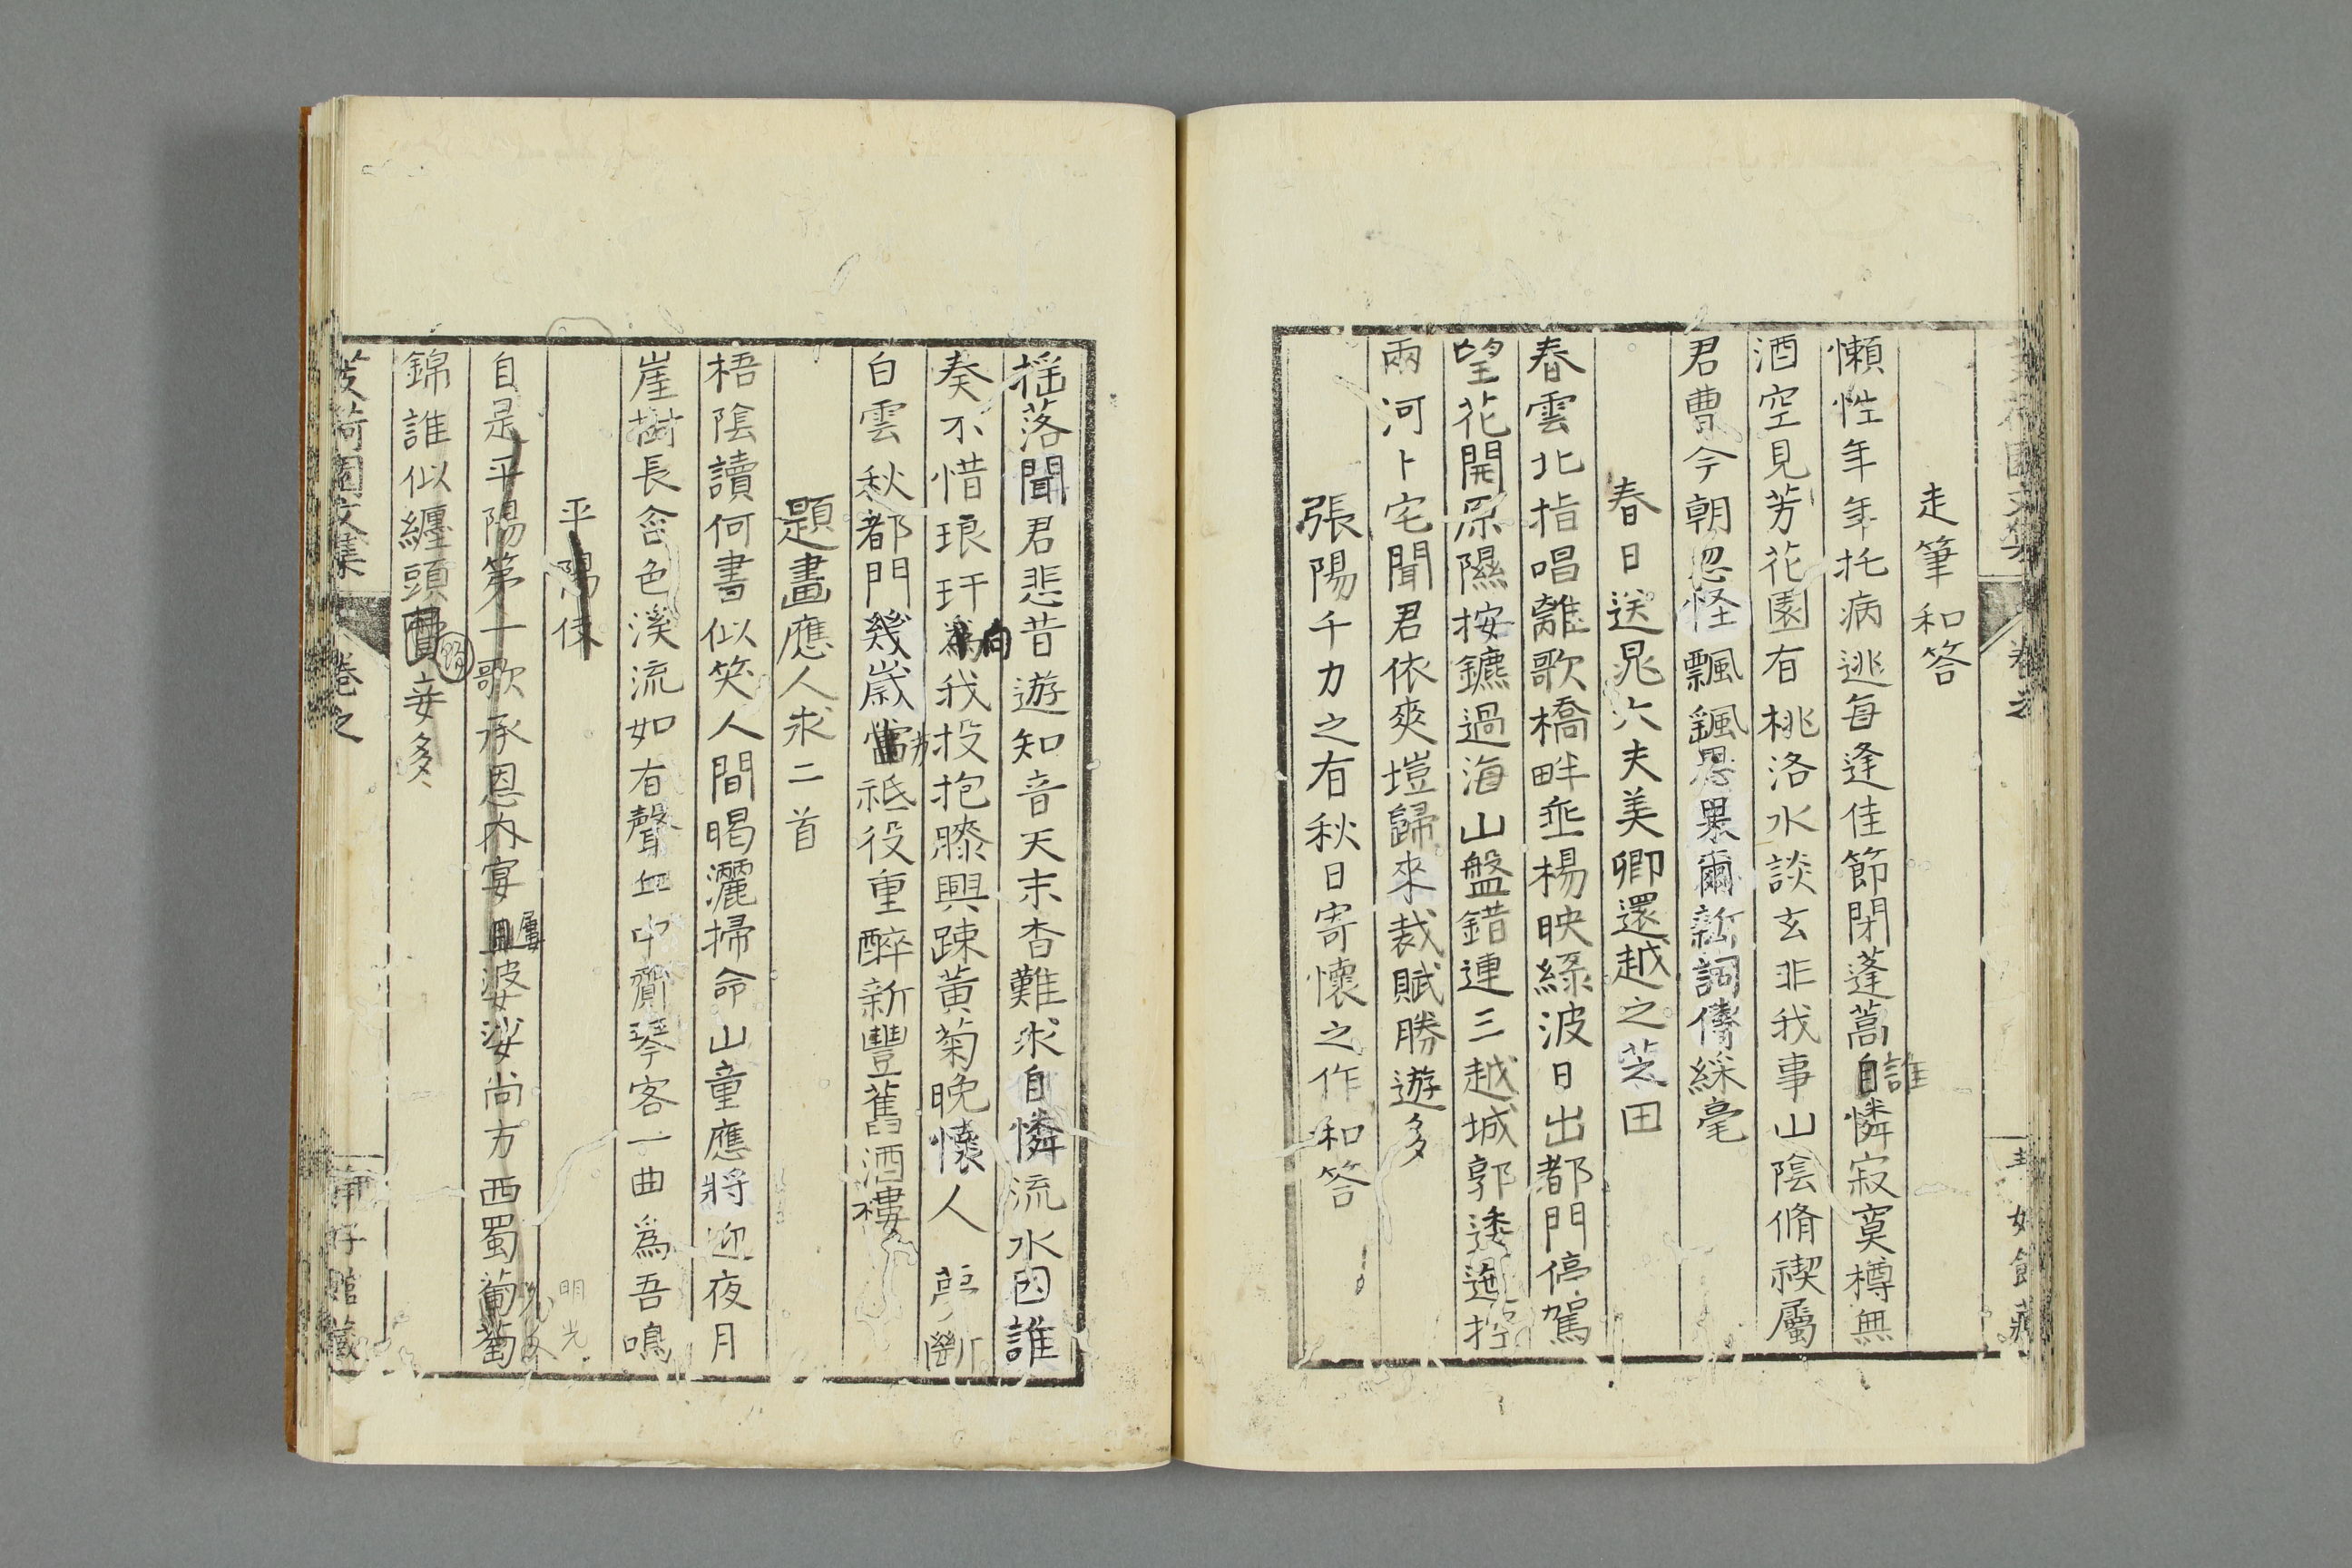 走筆和答
懶性年年托病逃每逢佳節閉蓬蒿自誰憐寂寞樽無
酒空見芳花園有桃洛水談玄非我事山陰脩禊屬
君曹今朝忽怪飄颻思異爾新詞儔綵毫
春日送晁六夫美卿還越之芝田
春雲北指唱離歌橋畔垂楊映綠波日出都門停駕
望花開原隰按鑣過海山盤錯連三越城郭逶迤控
兩河卜宅聞君依爽塏歸來裁賦勝遊多
張陽千力之有秋日寄懷之作和答
揺落聞君悲昔遊知音天末杳難求自憐流水因誰
奏不惜琅玕為向我投抱膝興踈黃菊晚懷人夢斷
白雲秋都門幾歲當祗役重醉新豐舊酒樓
題畫應人求二首
梧陰讀何書似笑人間暍灑掃命山童應將迎夜月
崖樹長含色溪流如有聲皿中齎琴客一曲爲吾鳴
平陽伎
明光
自是平陽第一歌承恩內宴且屢婆娑尚方西蜀葡萄
錦誰似纏頭費妾多
芰荷園文集
卷之